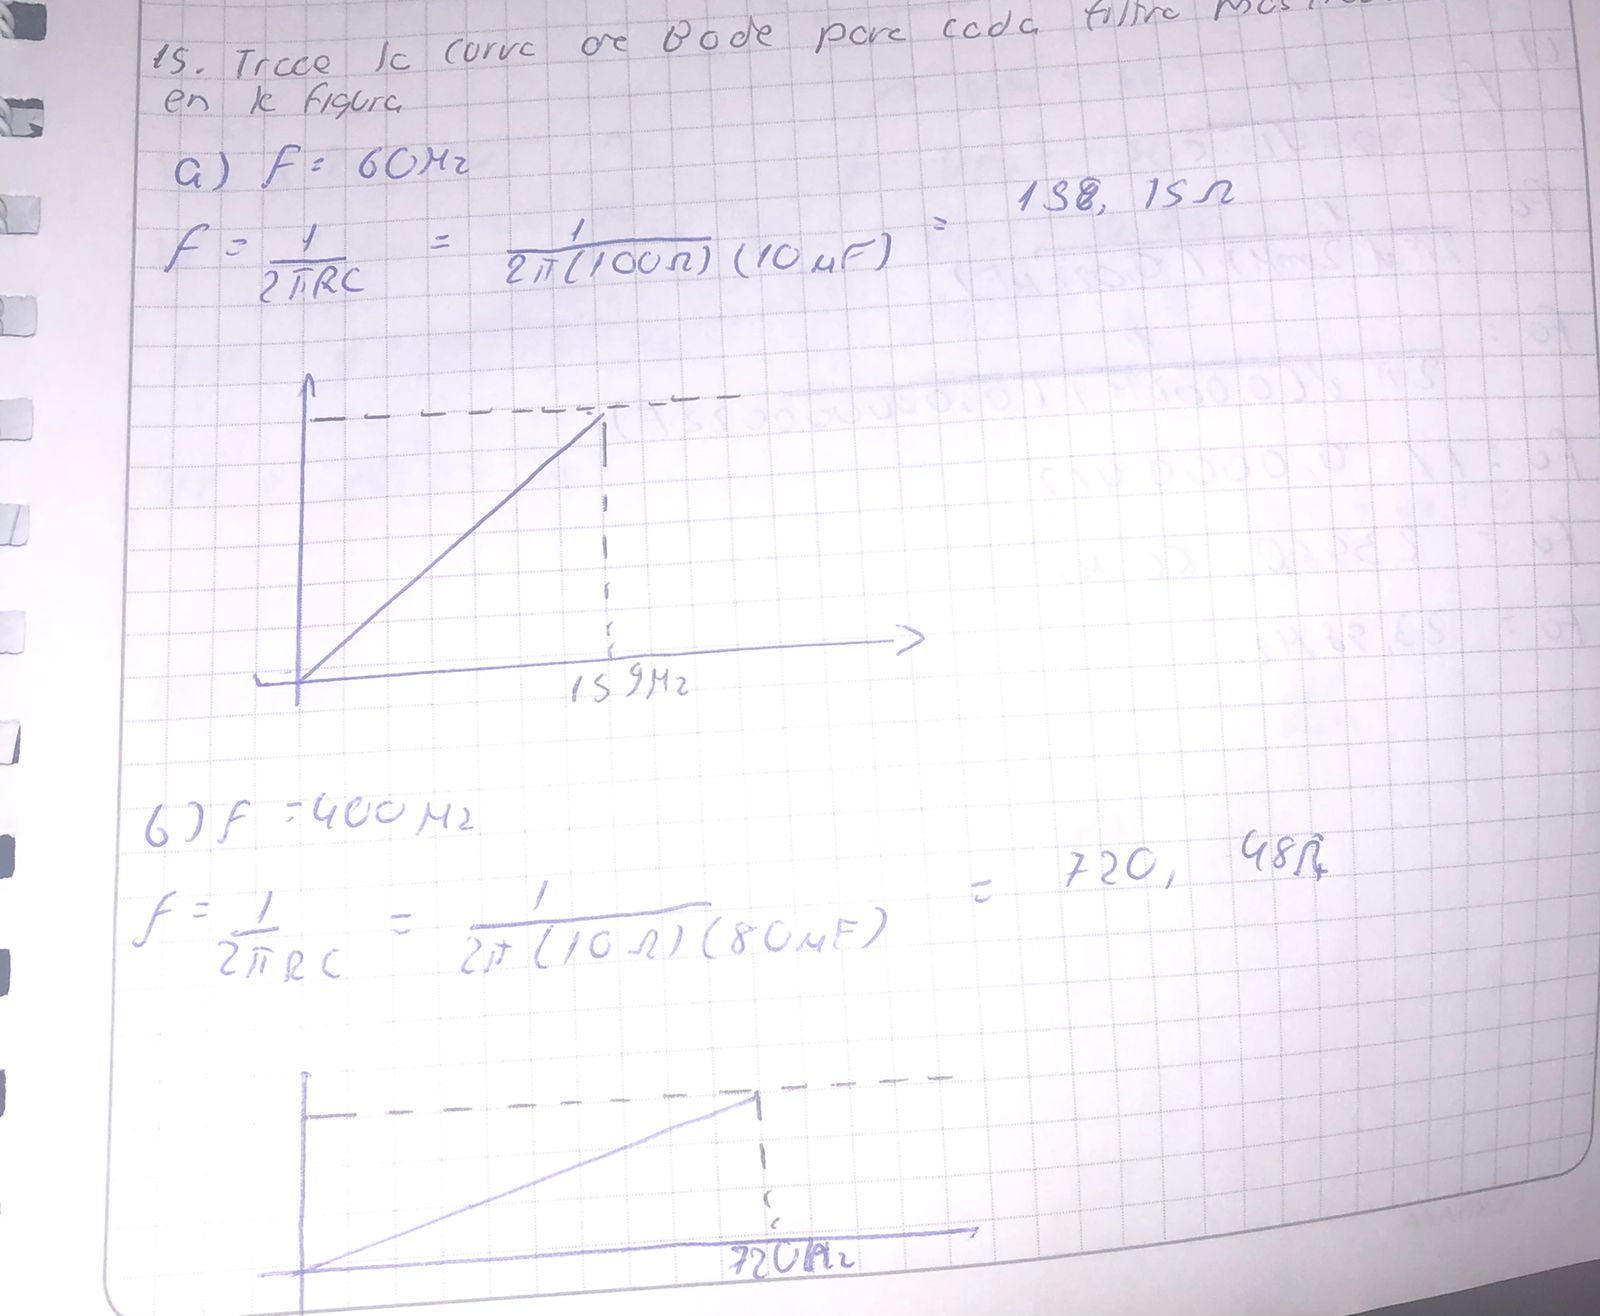 15. Trace la curva de Bode para cada filtro
en la figura
a) f = 60Hz
f = 1/2πRC = 1/2π(100Ω)(10μF) = 158,15Ω
159Hz
b) f = 400Hz
f = 1/2πRC = 1/2π(10Ω)(80μF) = 720,48Ω
720Hz